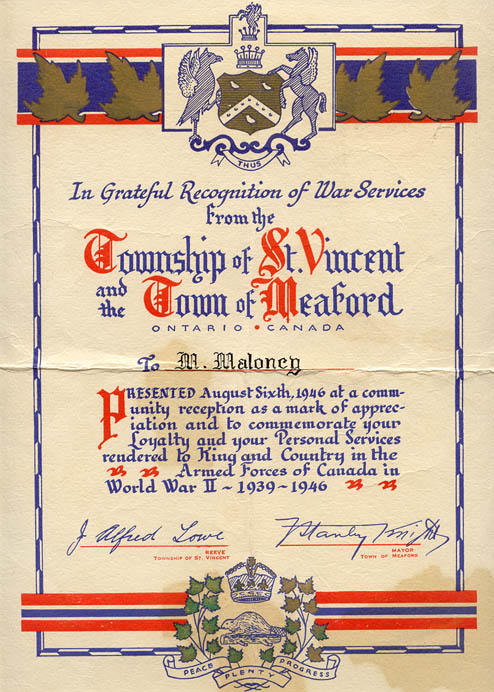 THUS
In Grateful Recognition of War Services
from the
Township of St. Vincent
and the Town of Meaford
ONTARIO • CANADA
To M. Maloney
PRESENTED August Sixth, 1946 at a comm-
unity reception as a mark of apprec-
iation and to commemorate your
Loyalty and your Personal Services
rendered to King and Country in the
Armed Forces of Canada in
World War II ~ 1939 ~ 1946
J Alfred Lowe
REEVE
TOWNSHIP OF ST. VINCENT
F Stanley Knight
MAYOR
TOWN OF MEAFORD
PEACE PLENTY PROGRESS